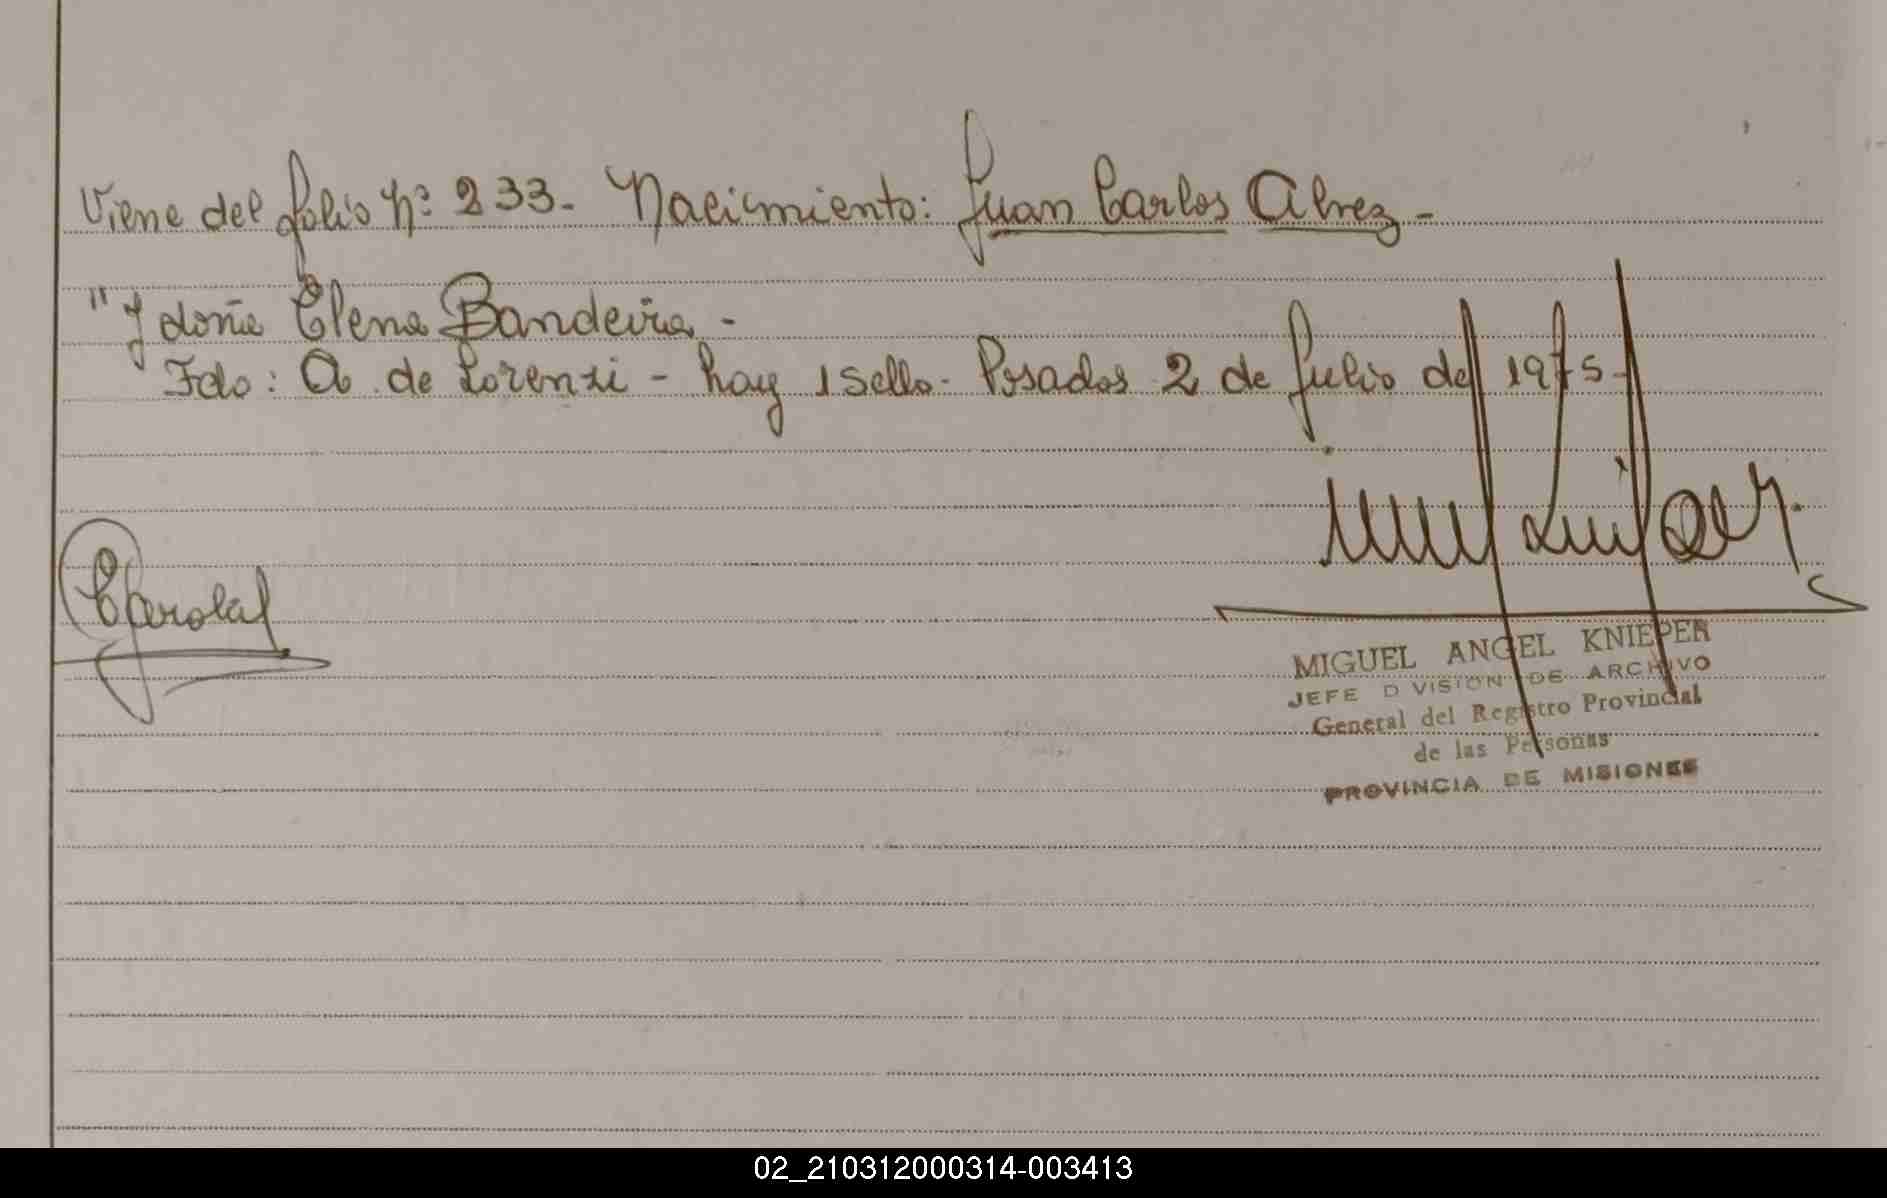 Viene del folio Nº 233. Nacimiento: Juan Carlos Alvez -
"Y doña Elena Bandeira -
Fdo: A. de Lorenzi - hay 1 sello. Posadas 2 de Julio de 1975 -
MIGUEL ANGEL KNIEPER
JEFE D VISION DE ARCHIVO
General del Registro Provincial
de las Personas
PROVINCIA DE MISIONES
02_210312000314-003413